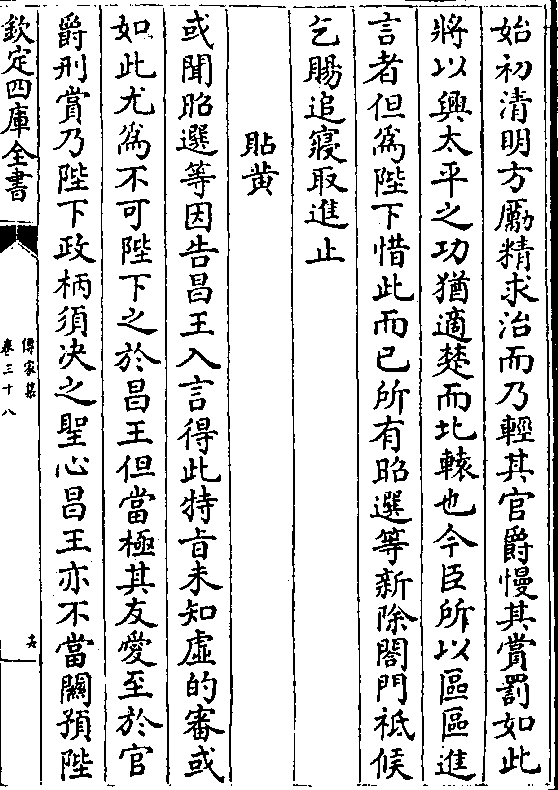 始初清明方勵精求治而乃輕其官爵慢其賞罰如此
將以興太平之功猶適楚而北轅也今臣所以區區進
言者但為陛下惜此而已所有昭選等新除閤門祗候
乞賜追寢取進止
貼黄
或聞昭選等因告昌王入言得此特㫖未知虛的審或
如此尤為不可陛下之於昌王但當極其友愛至於官
爵刑賞乃陛下政柄須決之聖心昌王亦不當闗預陛
欽定四庫全書
傳家集
卷三十八